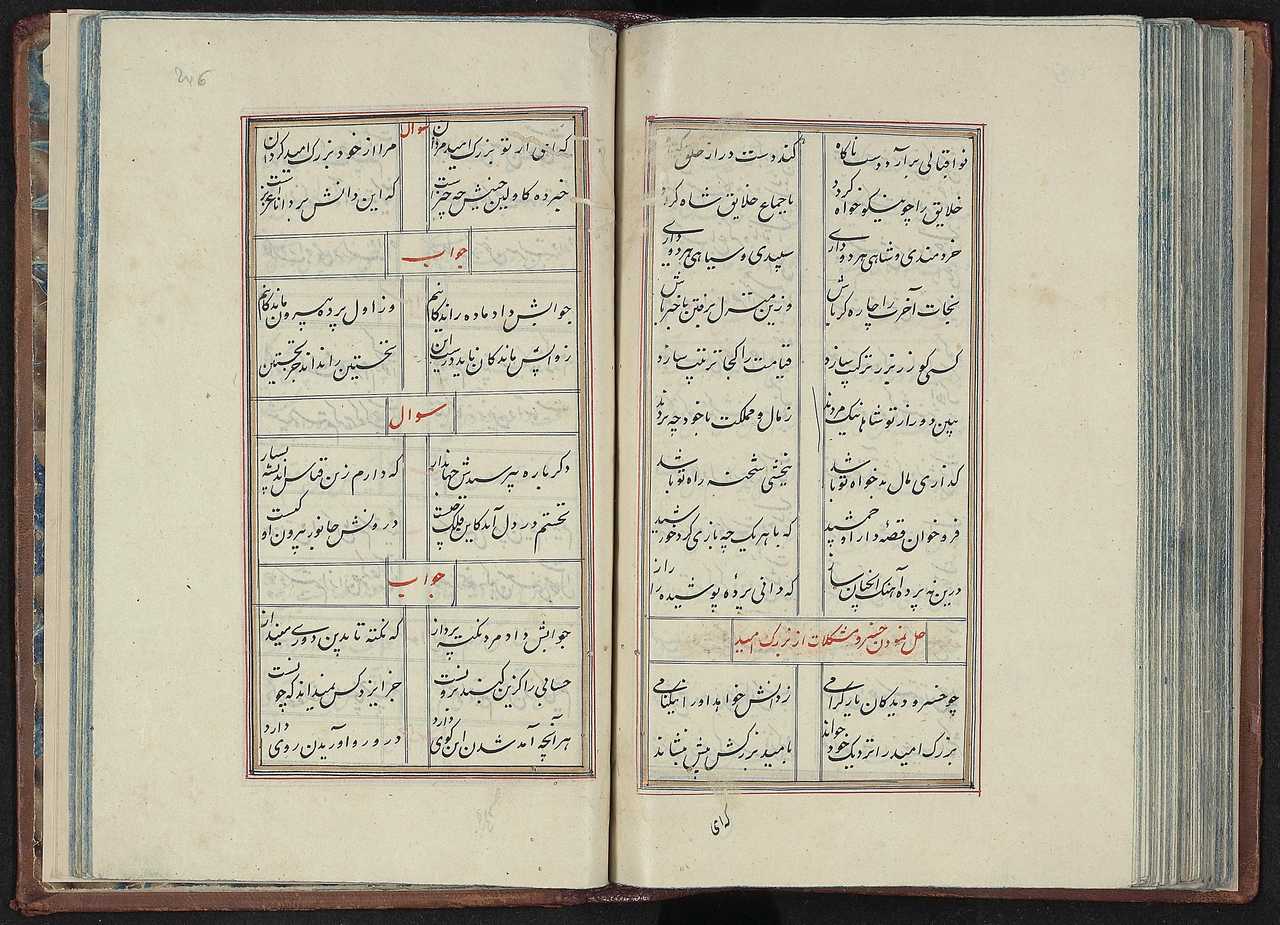 نوا قبالی برآرد دست ناکاه کند دست دراز خلق
خلایق را چو نیکو خواه کردد باجماع خلایق شاه کردد
خردمندی و شاهی هر دو داری سپیدی و سیاهی هر دو داری
نجات آخرت را چاره کر باش وزین منزل برفتن باخبر باش
کسی کو زر بزر ترکیب سازد قیامت را کجا ترتیب سازد
ببین دور از تو شاهانیکه مردند ز مال و مملکت باخود چه بردند
کذاری مال بدخواه تو باشد ببخشی شحنه راه تو باشد
فرو خوان قصهٔ دارا و جمشید که با هر یک چه بازی کرد خورشید
درین نه پرده آهنک آنچنان ساز که دانی پردهٔ پوشیده را راز
حل نمودن خسرو مشکلات از بزرک امید
چو خسرو دید کان یار کرامی ز دانش خواهد او را نیکنامی
بزرک امید را نزدیک خود خواند بامید بزرکش پیش بنشاند
که ای
246
سوال
که ای از تو بزرک امید مردان مرا از خود بزرک امید کردان
خبر ده کاولین جنبش چه چیزست که این دانش بر دانا عزیزست
جواب
جوابش داد ماده راندکانیم وز اول پرده بیرون ماندکانیم
ز واپس ماندکان ناید درست این نخستین را نداند جز نخستین
سوال
دکر باره بپرسیدش جهاندار که دارم زین قیاس اندیشه بسیار
نخستم در دل آید کاین فلک چیست درونش جانور بیرون او کیست
جواب
جوابش داد مرد نکته پرداز که نکته تا بدین دوری مینداز
حسابی را کزین کنبد برونست جز ایزد کس نمیداند که چونست
هرآنچه آمد شدن این کوی دارد در و رو آوریدن روی دارد